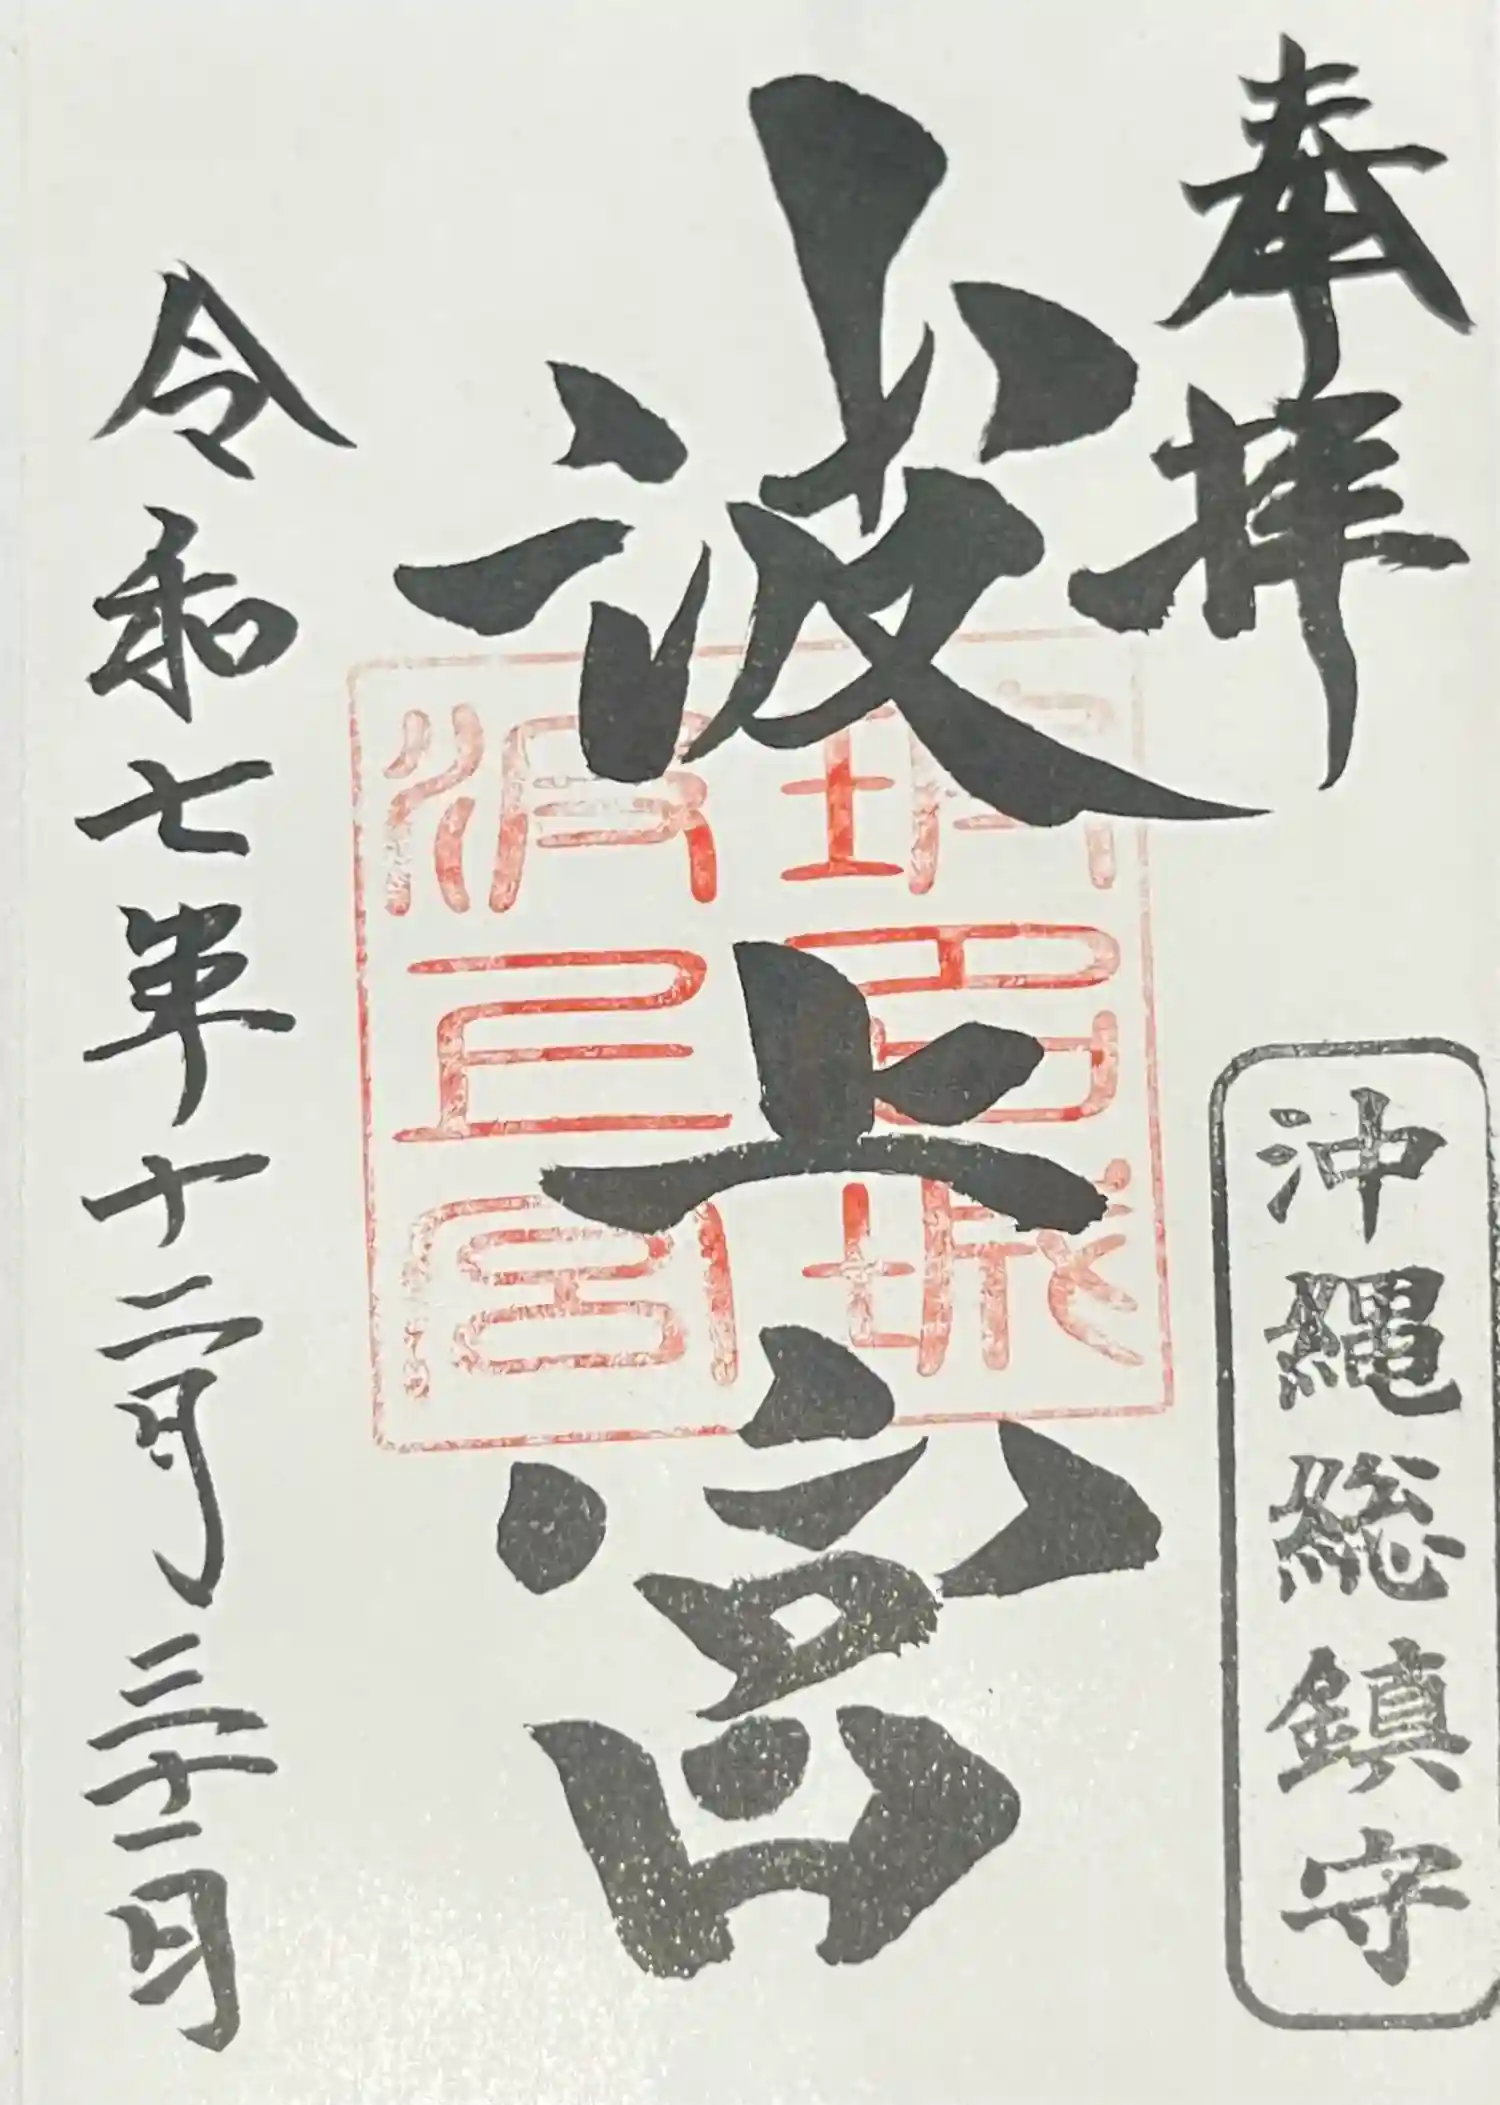 奉拝
沖縄総鎮守
波上宮
琉球
波上宮
令和七年十二月三十一日